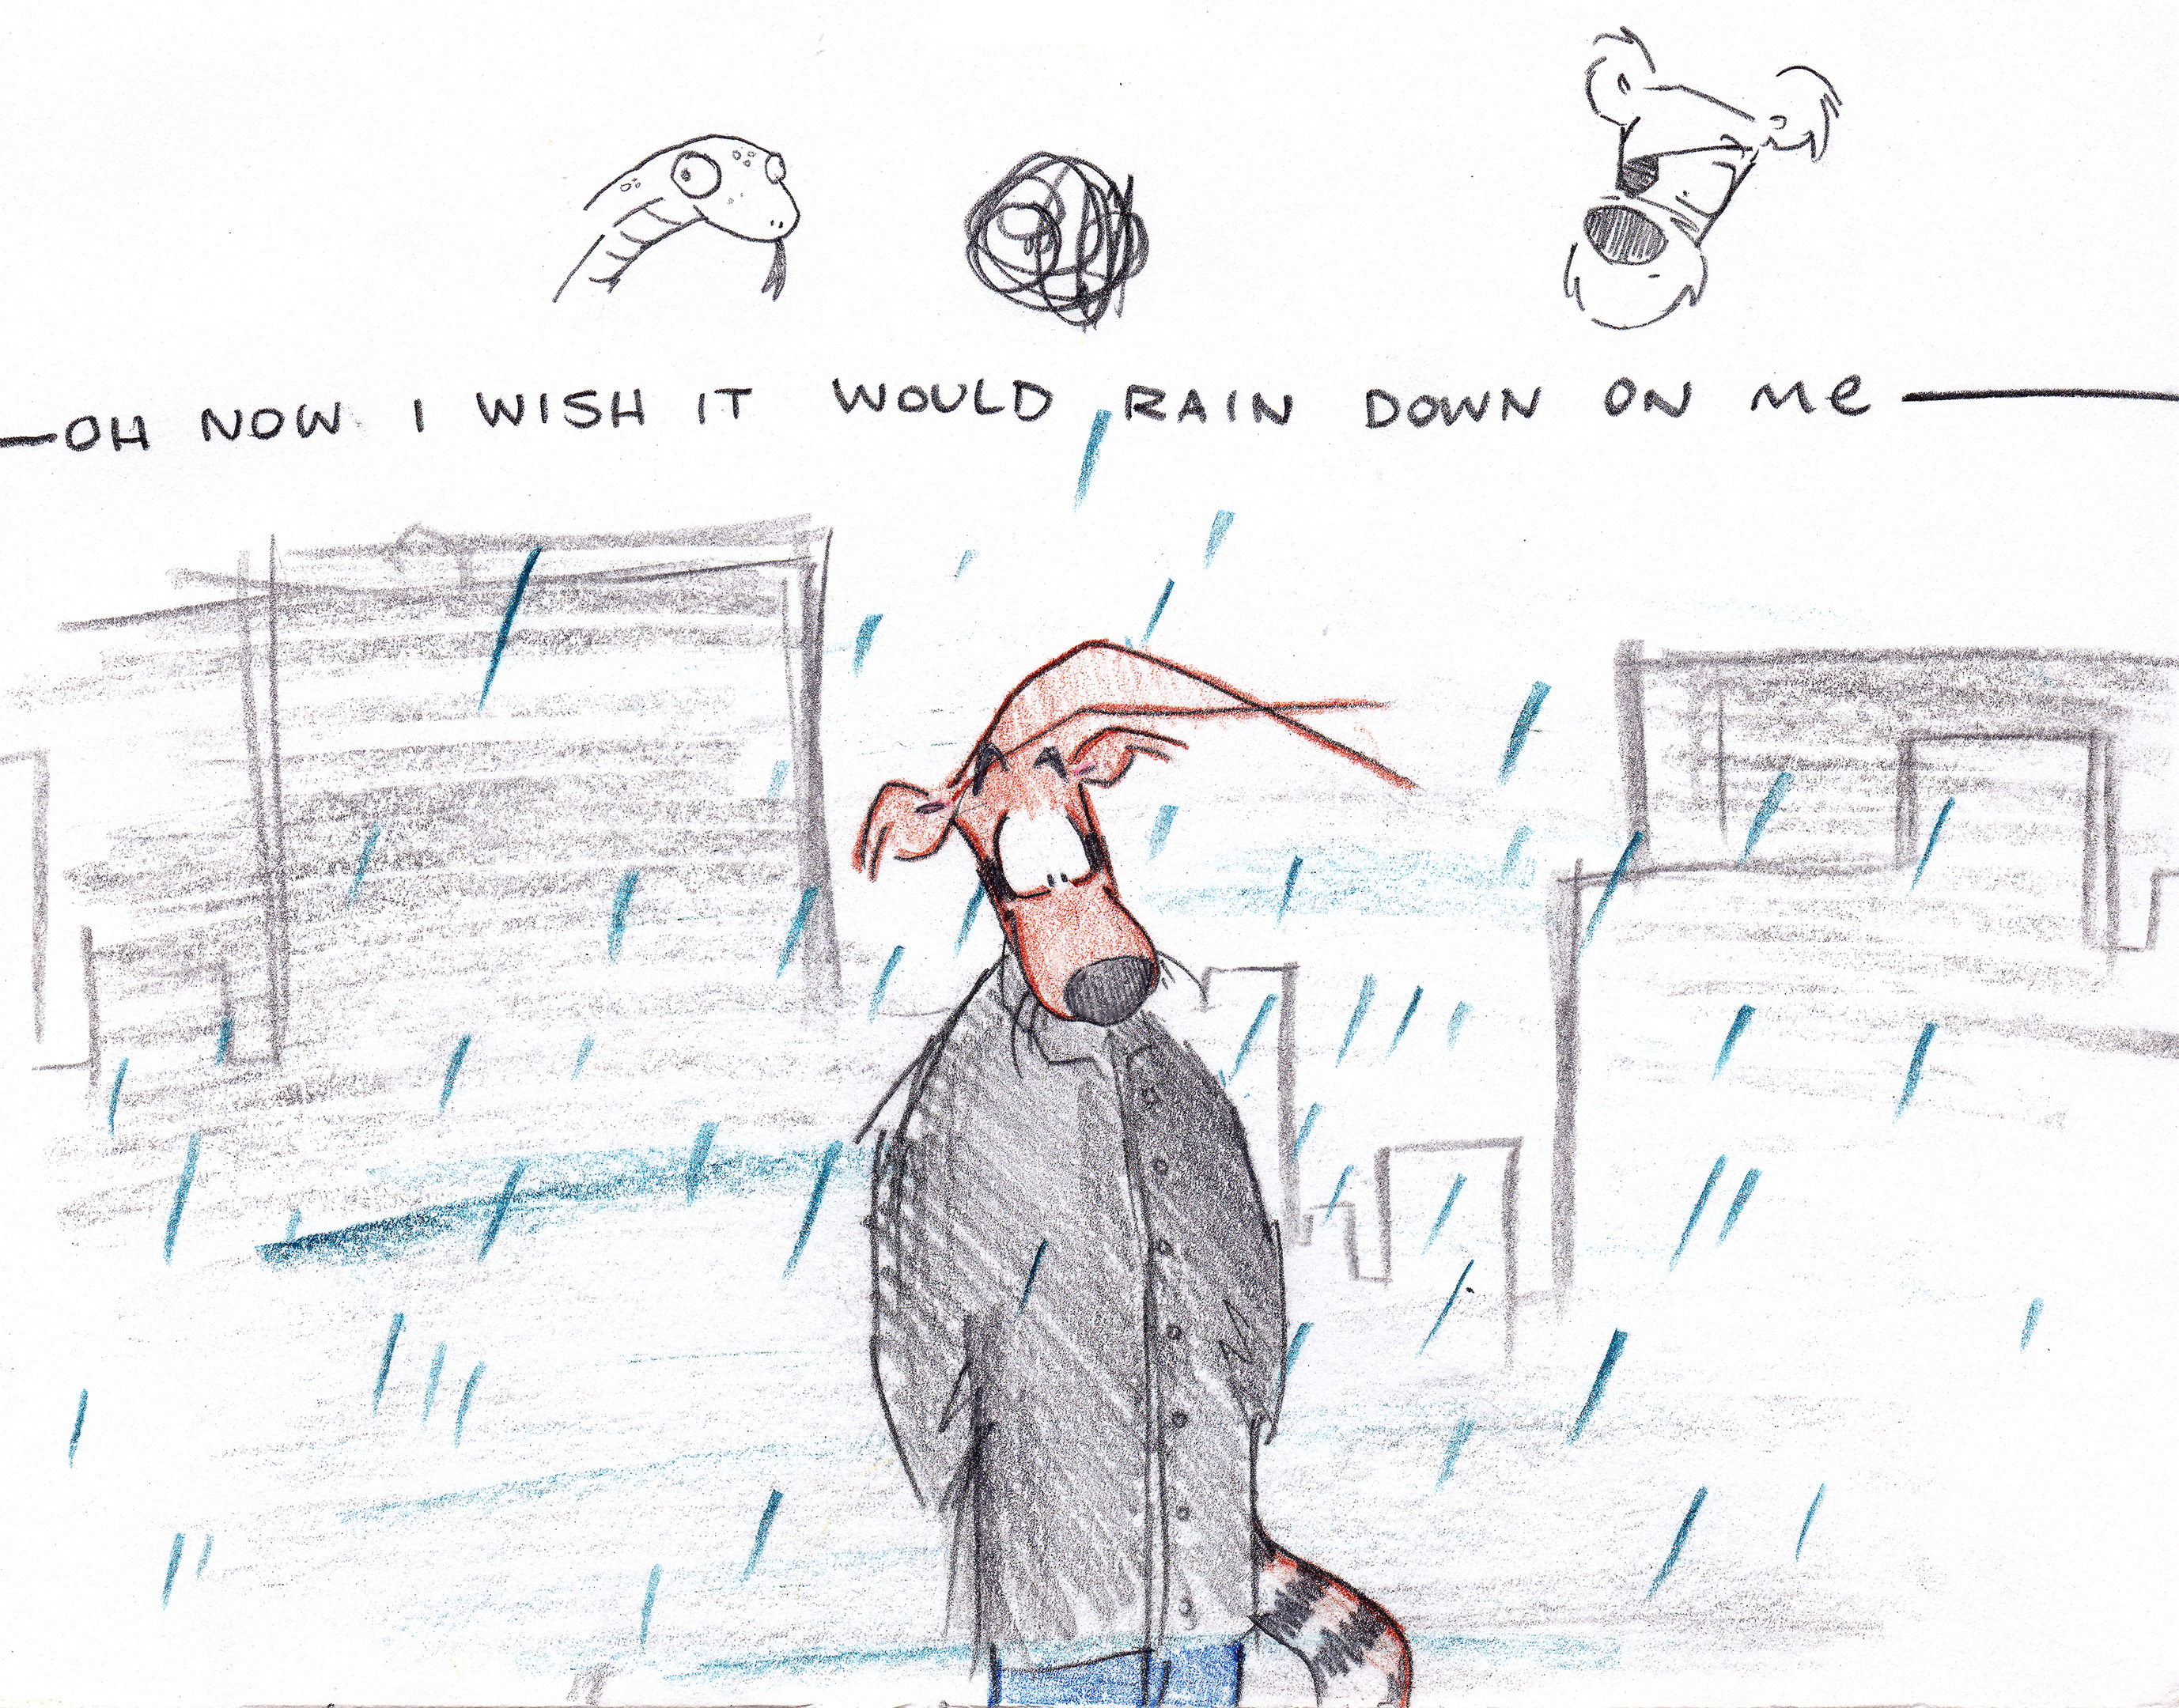 OH NOW I WISH IT WOULD RAIN DOWN ON Me